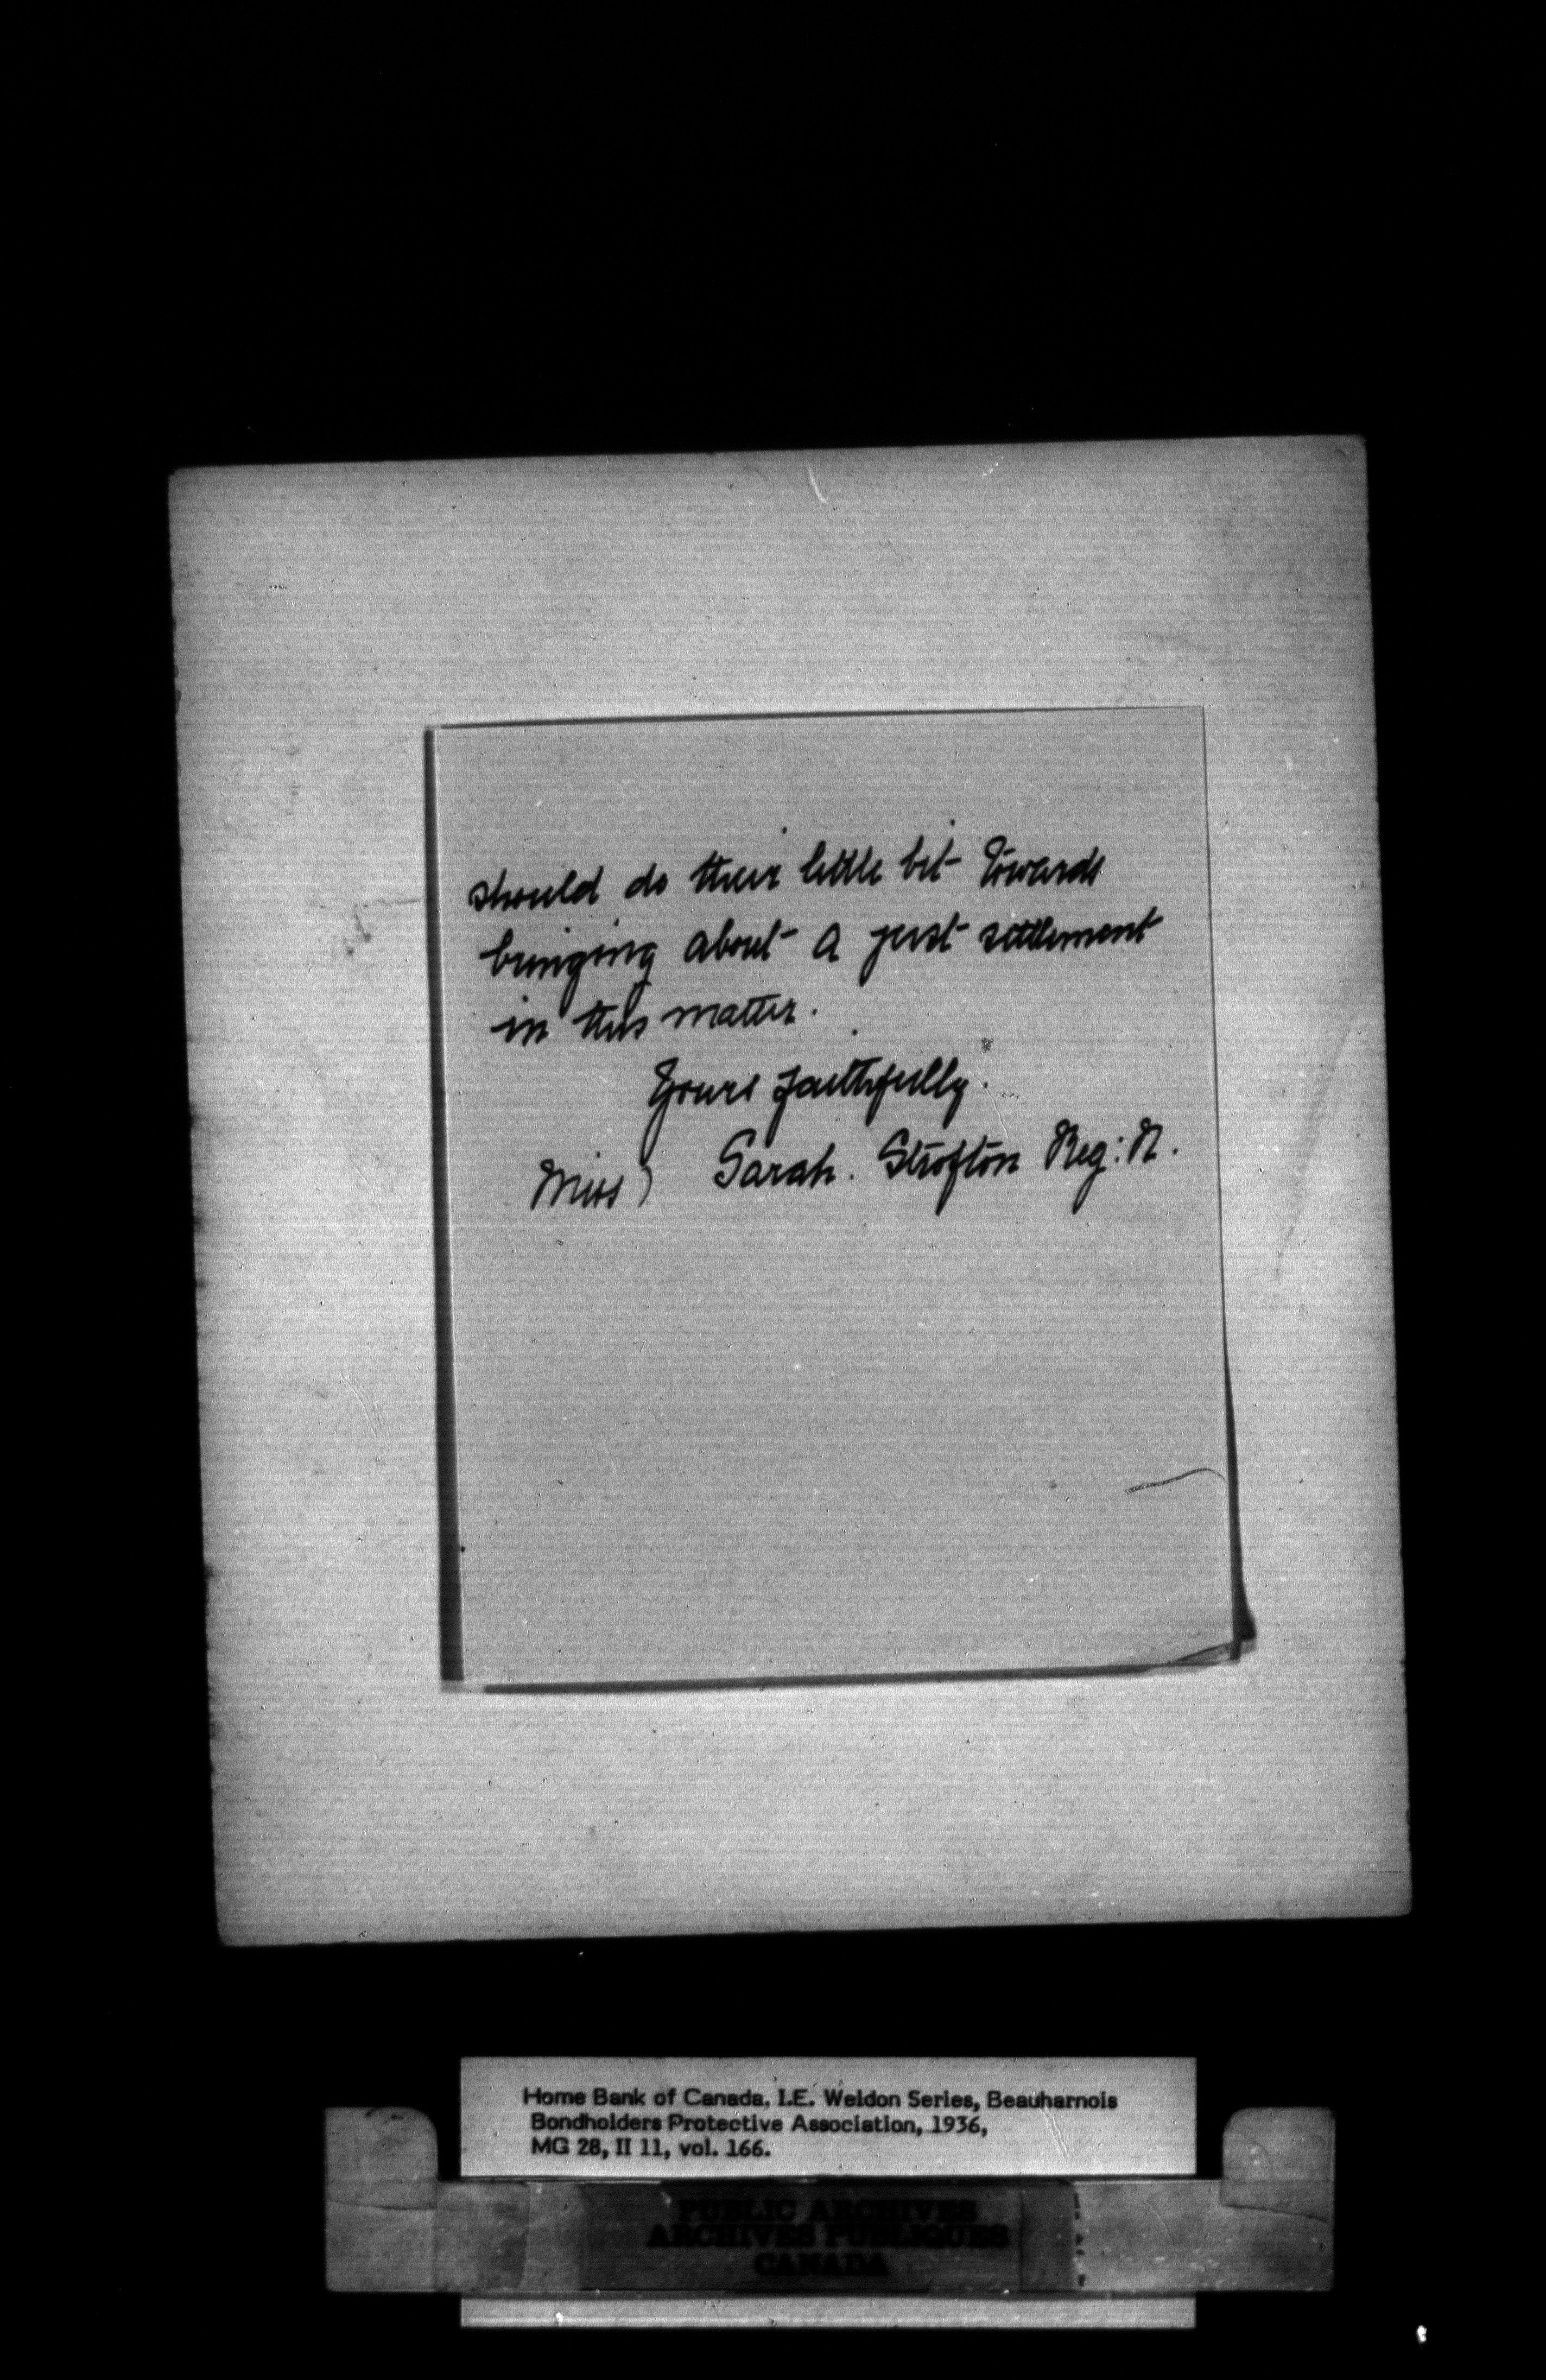 should do their little bit towards
bringing about a just settlement
in this matter.
Yours faithfully.
Miss) Sarah. Strofton Reg: N.
Home Bank of Canada, I.E. Weldon Series, Beauharnois
Bondholders Protective Association, 1936,
MG 28, II 11, vol. 166.
PUBLIC ARCHIVES
ARCHIVES PUBLIQUES
CANADA